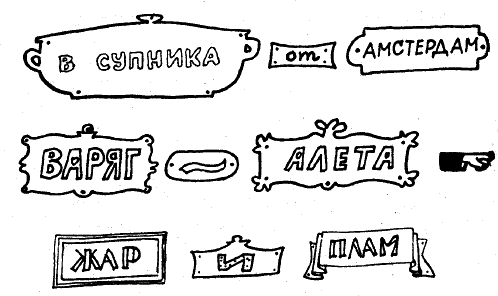 В СУПНИКА от АМСТЕРДАМ
ВАРЯГ АЛЕТА
ЖАР И ПЛАМ